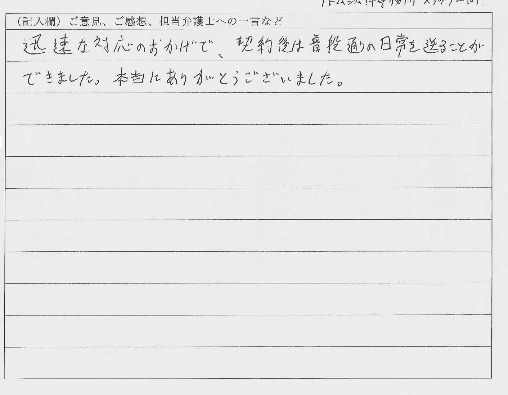 (記入欄)ご意見、ご感想、担当弁護士への一言など
迅速な対応のおかげで、契約後は普段通りの日常を送ることが
できました。本当にありがとうございました。